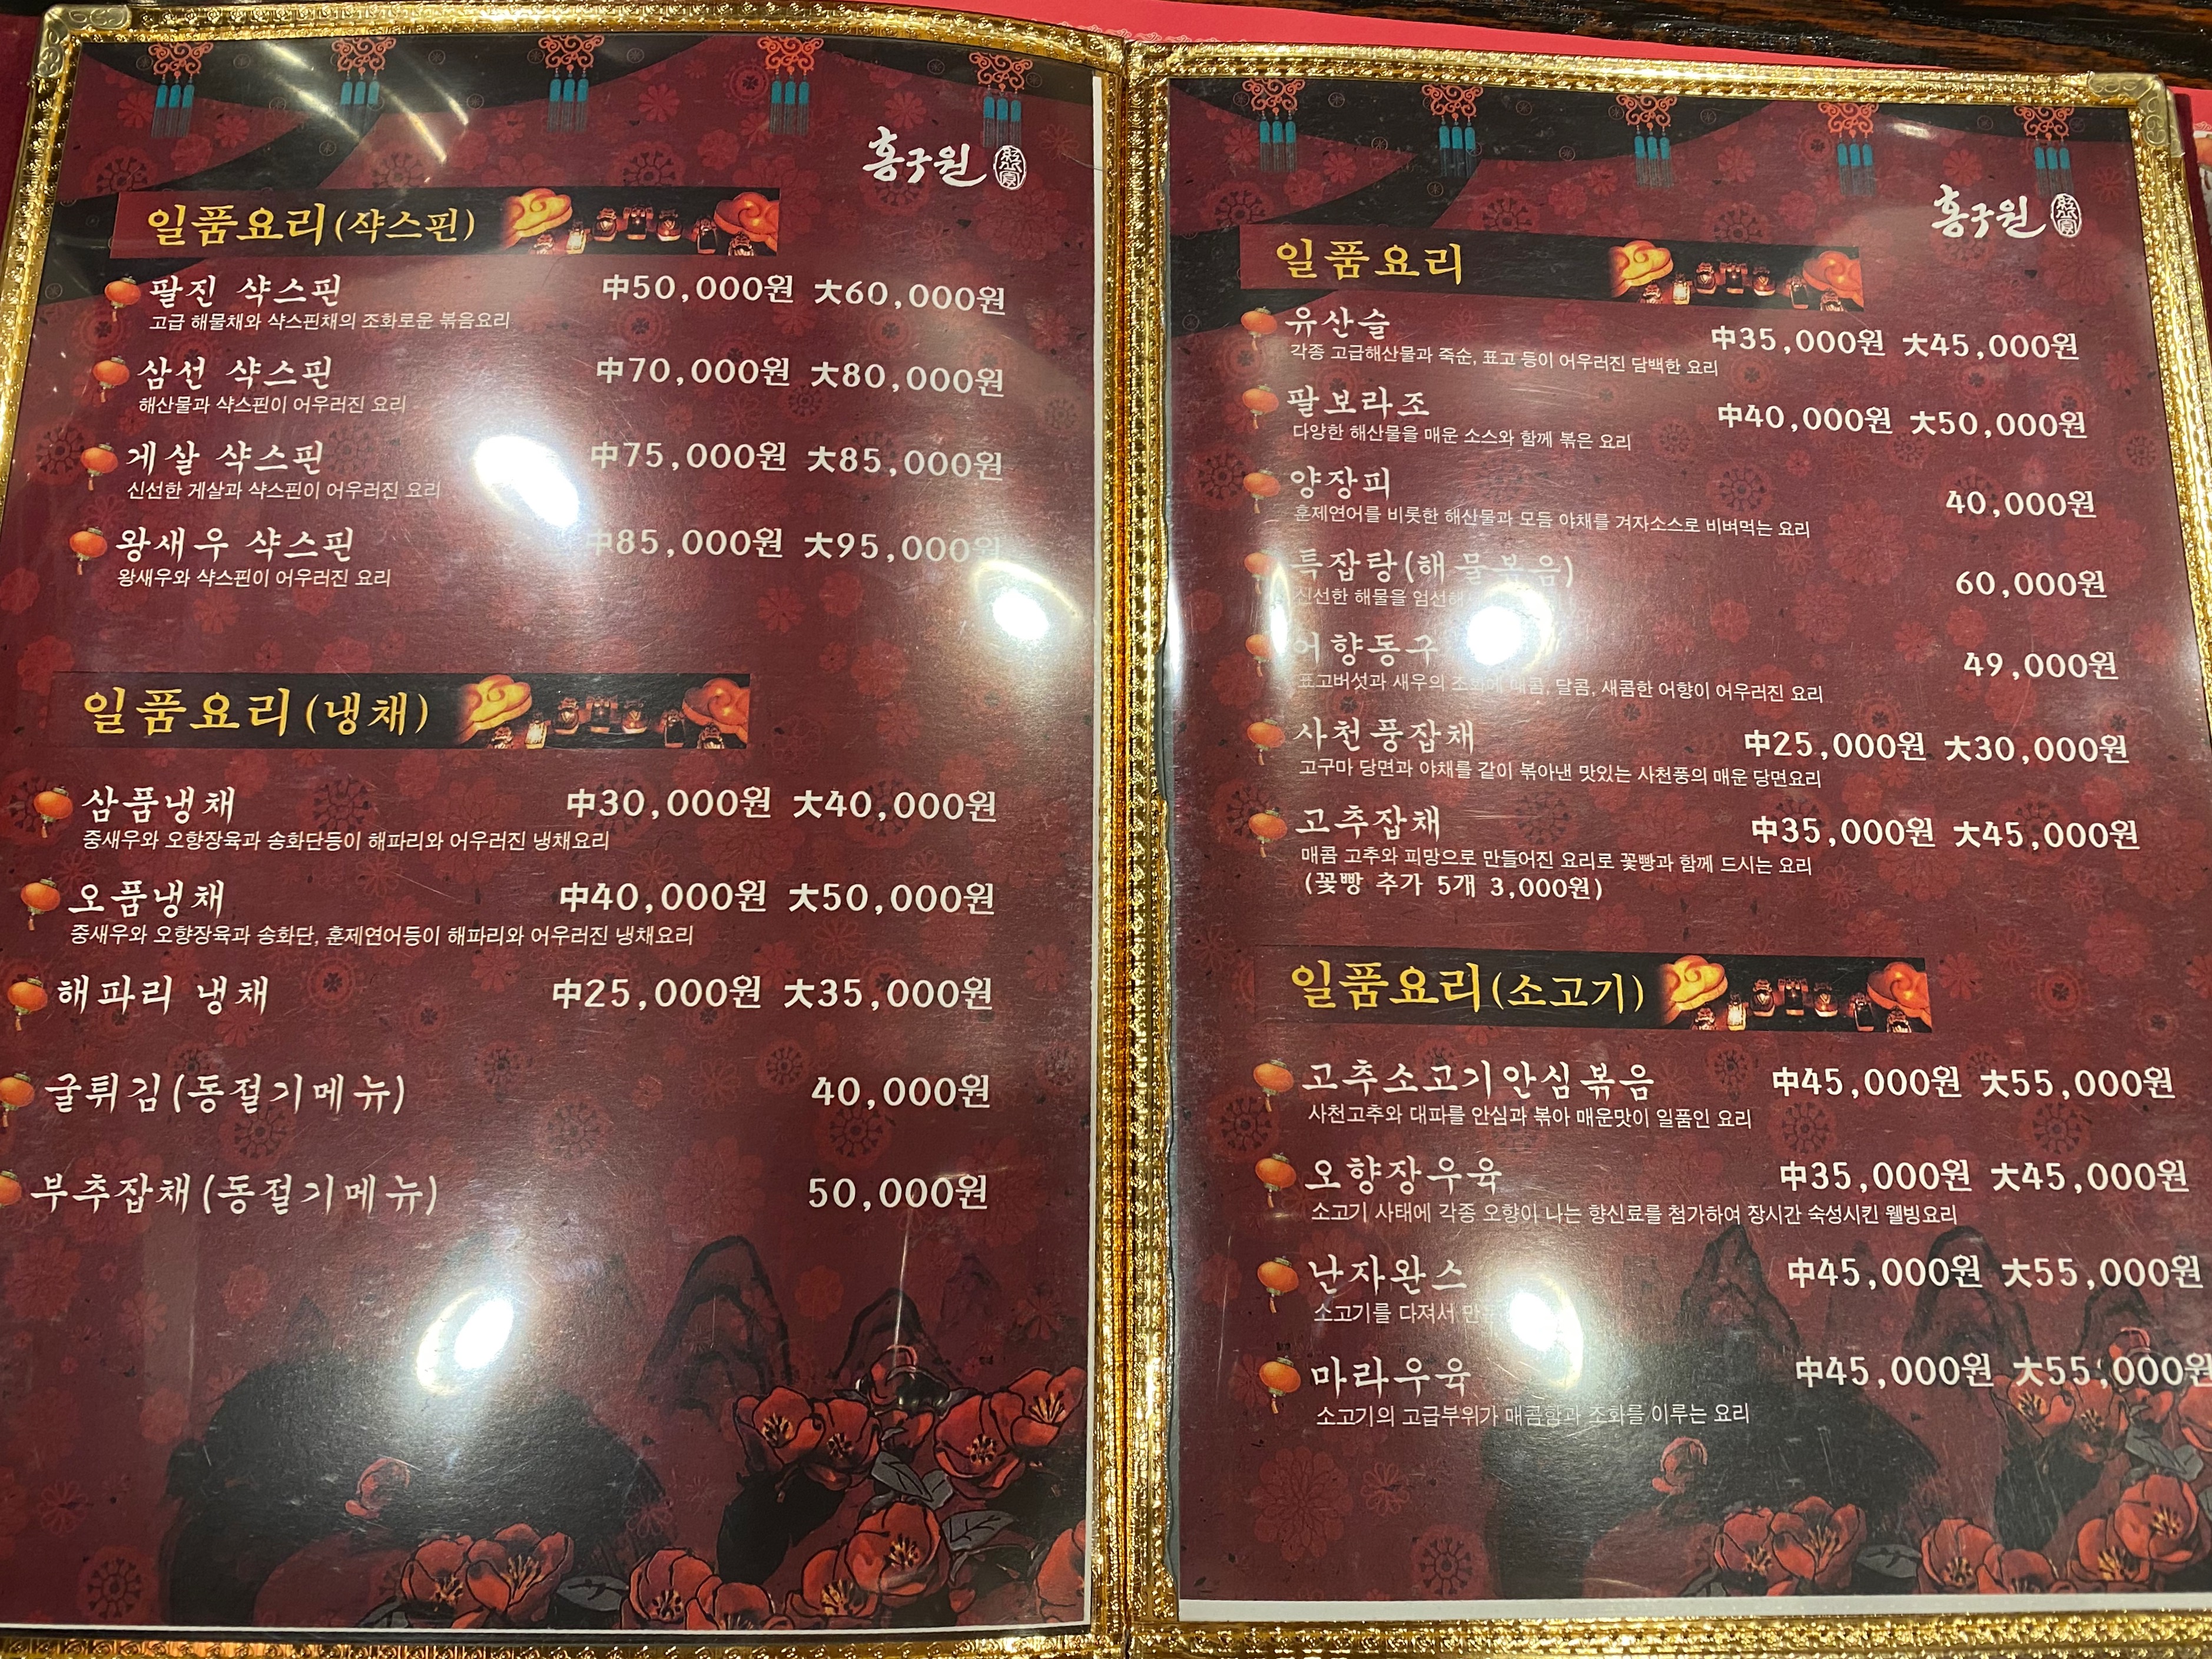 홍구원
일품요리(샥스핀)
팔진 샥스핀 中50,000원 大60,000원
고급 해물채와 샥스핀채의 조화로운 볶음요리
삼선 샥스핀 中70,000원 大80,000원
해산물과 샥스핀이 어우러진 요리
게살 샥스핀 中75,000원 大85,000원
신선한 게살과 샥스핀이 어우러진 요리
왕새우 샥스핀 中85,000원 大95,000원
왕새우와 샥스핀이 어우러진 요리
일품요리(냉채)
삼품냉채 中30,000원 大40,000원
중새우와 오향장육과 송화단등이 해파리와 어우러진 냉채요리
오품냉채 中40,000원 大50,000원
중새우와 오향장육과 송화단, 훈제연어등이 해파리와 어우러진 냉채요리
해파리 냉채 中25,000원 大35,000원
굴튀김(동절기메뉴) 40,000원
부추잡채(동절기메뉴) 50,000원
홍구원
일품요리
유산슬 中35,000원 大45,000원
각종 고급해산물과 죽순, 표고 등이 어우러진 담백한 요리
팔보라조 中40,000원 大50,000원
다양한 해산물을 매운 소스와 함께 볶은 요리
양장피 40,000원
훈제연어를 비롯한 해산물과 모듬 야채를 겨자소스로 비벼먹는 요리
특잡탕(해물볶음) 60,000원
신선한 해물을 엄선해
어향동구 49,000원
표고버섯과 새우의 조화에 매콤, 달콤, 새콤한 어향이 어우러진 요리
사천풍잡채 中25,000원 大30,000원
고구마 당면과 야채를 같이 볶아낸 맛있는 사천풍의 매운 당면요리
고추잡채 中35,000원 大45,000원
매콤 고추와 피망으로 만들어진 요리로 꽃빵과 함께 드시는 요리
(꽃빵 추가 5개 3,000원)
일품요리(소고기)
고추소고기안심볶음 中45,000원 大55,000원
사천고추와 대파를 안심과 볶아 매운맛이 일품인 요리
오향장우육 中35,000원 大45,000원
소고기 사태에 각종 오향이 나는 향신료를 첨가하여 장시간 숙성시킨 웰빙요리
난자완스 中45,000원 大55,000원
소고기를 다져서
마라우육 中45,000원 大55,000원
소고기의 고급부위가 매콤함과 조화를 이루는 요리